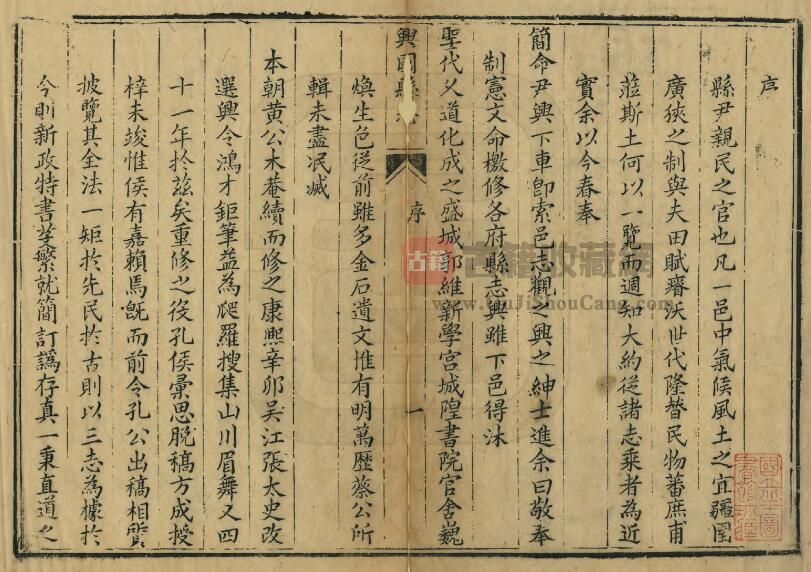 序
縣尹親民之官也凡一邑中氣候風土之宜疆圉
廣狹之制與夫田賦瘠沃世代隆替民物蕃庶甫
蒞斯土何以一覽而週知大約從諸志乘者為近
實余以今春奉
簡命尹興下車卽索邑志觀之興之紳士進余曰敬奉
制憲文命檄修各府縣志興雖下邑得沐
聖代久道化成之盛城郭維新學宮城隍書院官舍巍
興國縣
序
一
煥生色從前雖多金石遺文惟有明萬歷蔡公所
輯未盡泯滅
本朝黃公木菴續而修之康熙辛卯吳江張太史改
選興令鴻才鉅筆益為爬羅搜集山川眉舞又四
十一年於茲矣重修之役孔侯彙思脫稿方成授
梓未竣惟侯有嘉賴焉旣而前令孔公出稿相質
披覽其全法一矩於先民於古則以三志為據於
今則新政特書芟繁就簡訂譌存真一秉直道之
古籍
古籍收藏網
www.GuJiShouCang.com